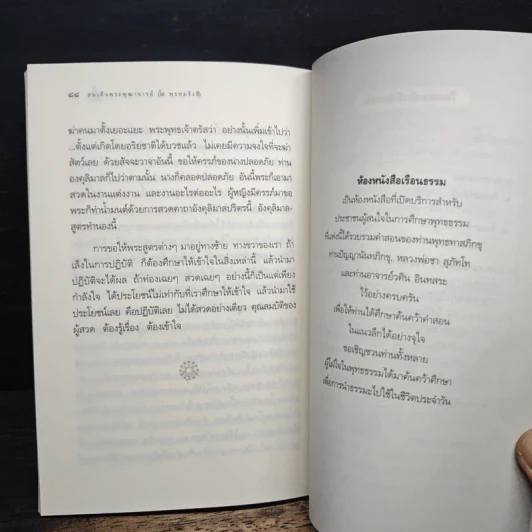 ๘๘ สมเด็จพระพุฒาจารย์ (โต พรหมรังสี)
ฆ่าคนมาตั้งเยอะแยะ พระพุทธเจ้าตรัสว่า อย่างนั้นเพิ่มเข้าไปว่า
...ตั้งแต่เกิดโดยอริยชาติได้บวชแล้ว ไม่เคยมีความจงใจที่จะฆ่า
สัตว์เลย ด้วยสัจจะวาจาอันนี้ ขอให้ครรภ์ของนางปลอดภัย ท่าน
องคุลิมาลก็ไปว่าตามนั้น นางก็คลอดปลอดภัย อันนี้พระก็เอามา
สวดในงานแต่งงาน และงานอะไรต่ออะไร ผู้หญิงมีครรภ์มาขอ
พระก็ทำน้ำมนต์ด้วยการสวดคาถาอังคุลิมาลปริตรนี้ อังคุลิมาล-
สูตรทำนองนี้
การขอให้พระสูตรต่างๆ มาอยู่ทางซ้าย ทางขวาของเรา ถ้า
เล็งในการปฏิบัติ ก็ต้องศึกษาให้เข้าใจในสิ่งเหล่านี้ แล้วนำมา
ปฏิบัติจะได้ผล ถ้าท่องเฉยๆ สวดเฉยๆ อย่างนี้ก็เป็นแต่เพียง
กำลังใจ ได้ประโยชน์ไม่เท่ากับที่เราศึกษาให้เข้าใจ แล้วนำมาใช้
ประโยชน์เลย คือปฏิบัติเลย ไม่ได้สวดอย่างเดียว คุณสมบัติของ
ผู้สวด ต้องรู้เรื่อง ต้องเข้าใจ
ห้องหนังสือเรือนธรรม
เป็นห้องหนังสือที่เปิดบริการสำหรับ
ประชาชนผู้สนใจในการศึกษาพุทธธรรม
ที่แห่งนี้ได้รวบรวมคำสอนของท่านพุทธทาสภิกขุ
ท่านปัญญานันทภิกขุ, หลวงพ่อชา สุภัทโท
และท่านอาจารย์วศิน อินทสระ
ไว้อย่างครบครัน
เพื่อให้ท่านได้ศึกษาค้นคว้าคำสอน
ในแนวลึกได้อย่างจุใจ
ขอเชิญชวนท่านทั้งหลาย
ผู้ใฝ่ใจในพุทธธรรมได้มาค้นคว้าศึกษา
เพื่อการนำธรรมะไปใช้ในชีวิตประจำวัน